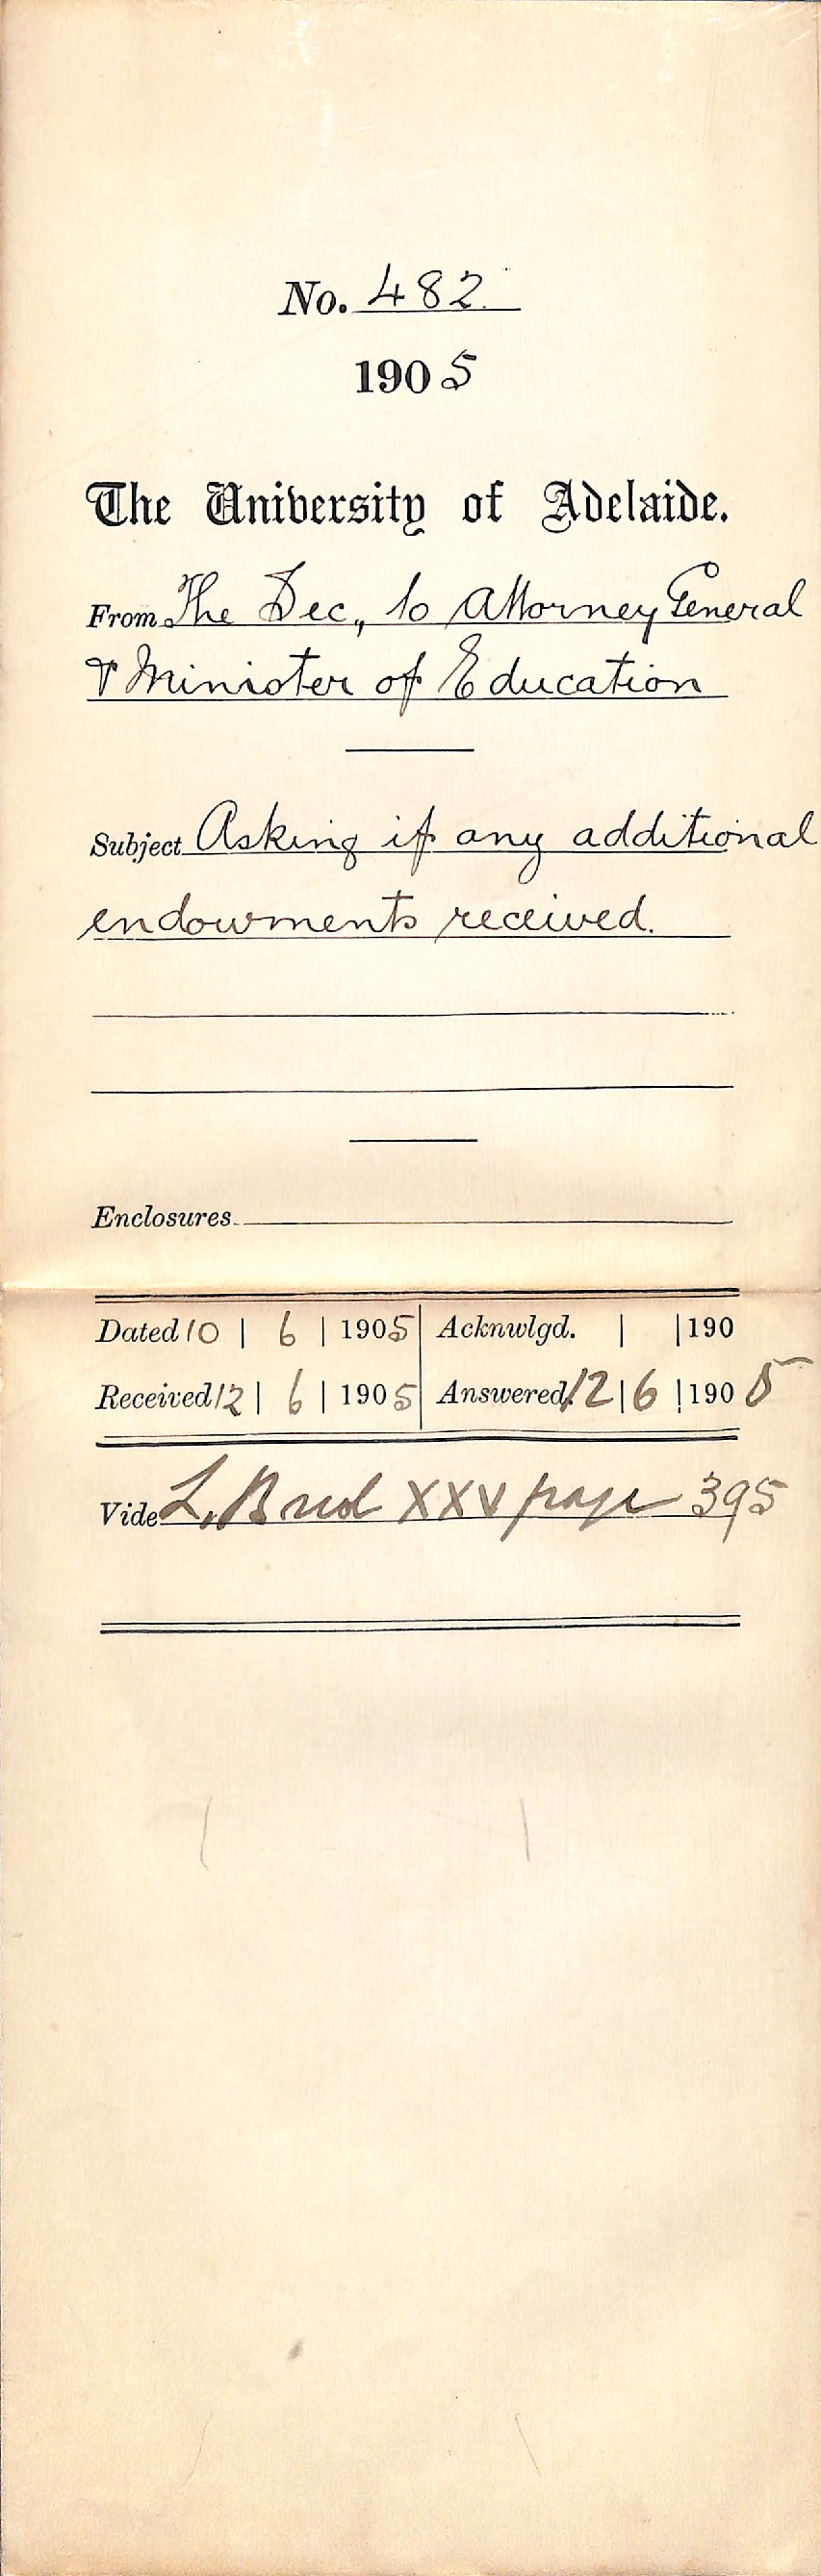 No. 482.
1905
The University of Adelaide.
From The Sec., to Attorney General
& Minister of Education
Subject Asking if any additional
endowments received.
Enclosures
Dated 10 | 6 | 1905 | Acknwlgd. | | 190
Received 12 | 6 | 1905 | Answered. 12 | 6 | 1905
Vide L. B XXV page 395